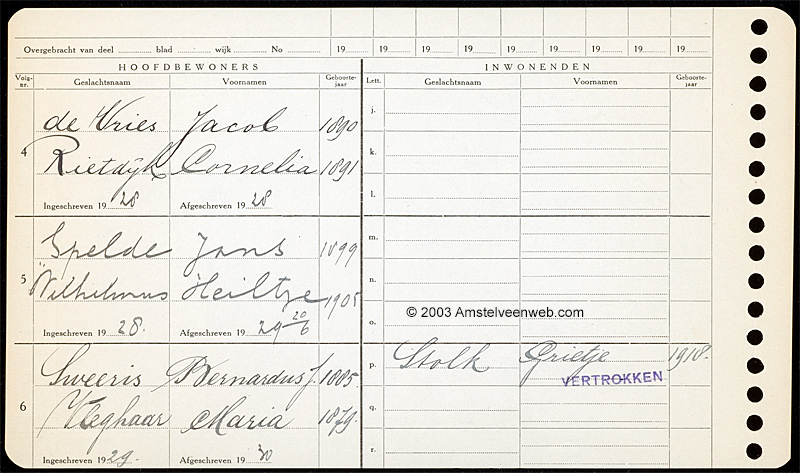 Overgebracht van deel blad wijk No 19 19 19 19 19 19 19 19 19
HOOFDBEWONERS INWONENDEN
Volg-nr. Geslachtsnaam Voornamen Geboorte-jaar Lett. Geslachtsnaam Voornamen Geboorte-jaar
j.
4 de Vries Jacob 1890
k.
Rietdijk Cornelia 1891
l.
Ingeschreven 19 28 Afgeschreven 19 28
m.
5 Spelde Jans 1899
n.
Wilhelmus Heiltje 1905
© 2003 Amstelveenweb.com
o.
Ingeschreven 19 28. Afgeschreven 19 29 20/6
p. Stolk Grietje 1918.
VERTROKKEN
6 Sweeris Bernardus J. 1885
q.
Vleghaar Maria 1879.
r.
Ingeschreven 19 29. Afgeschreven 19 30